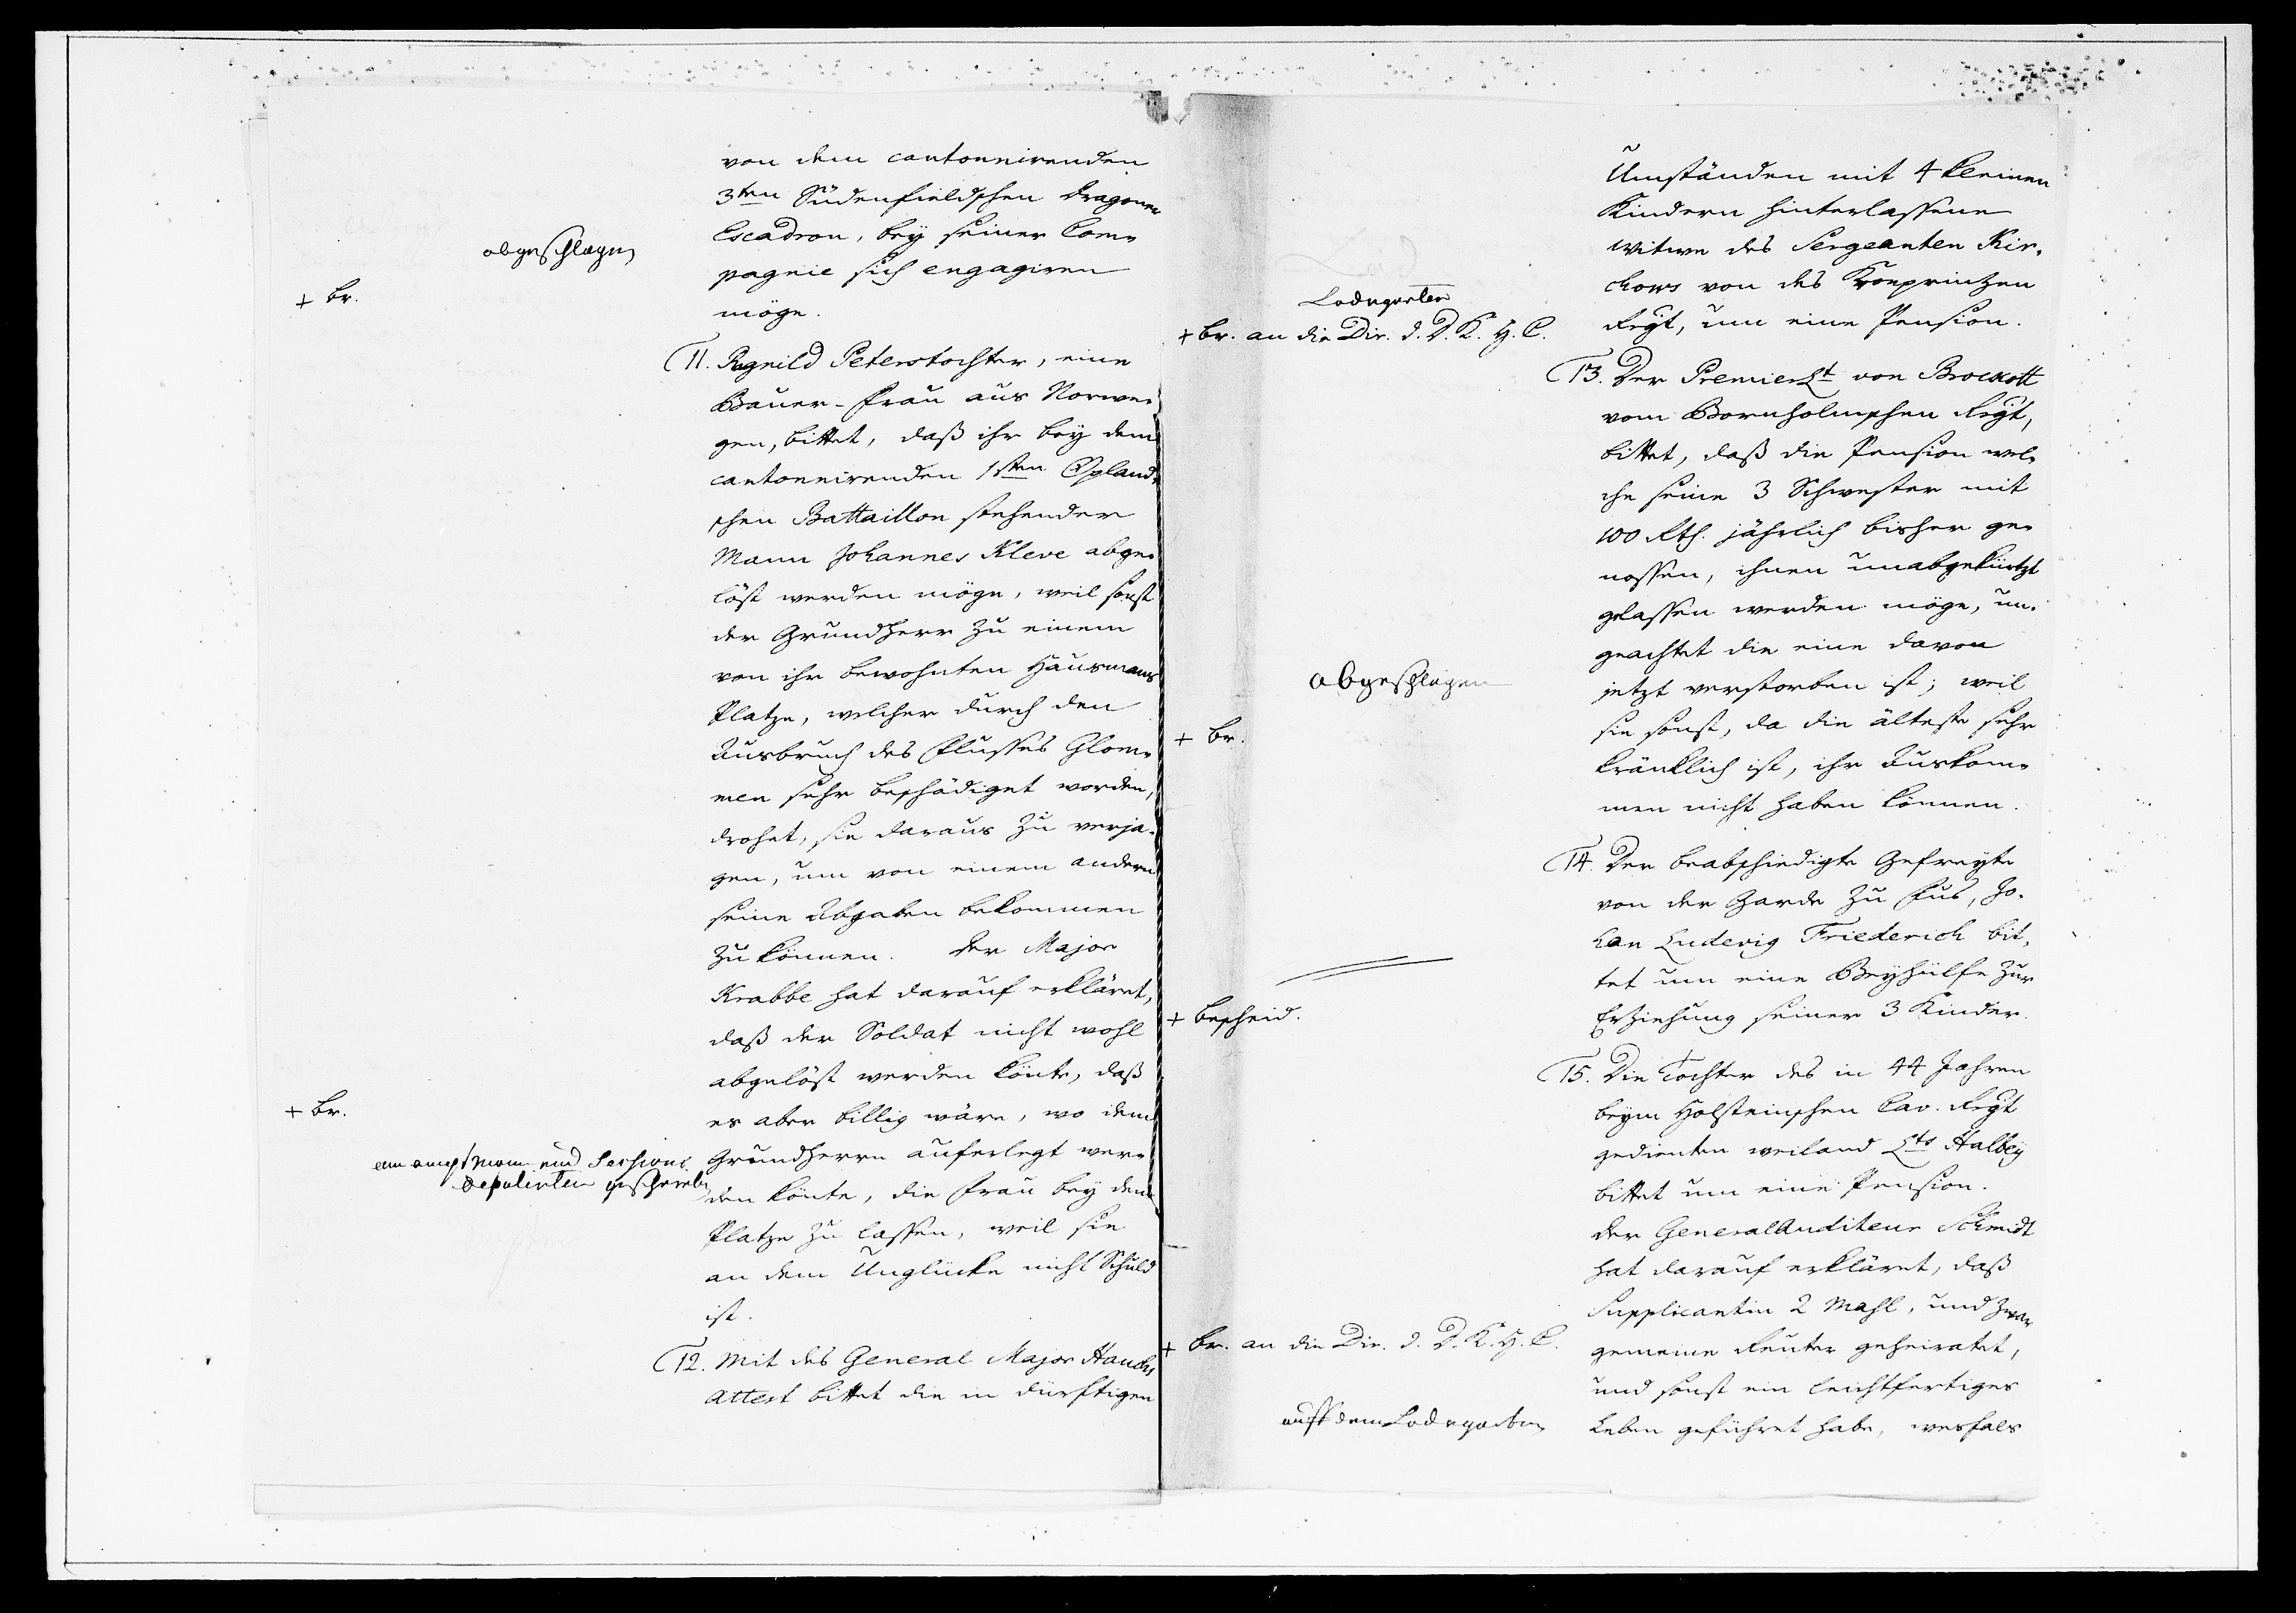 von dem cantonnirenden
3ten Südenfieldschen Dragoner
Escadron, bey seiner Com-
pagnie sich engagiren
möge.
abgeschlagen
+ br.
11. Ragnild Peterstochter, eine
Bauer-Frau aus Norwe-
gen, bittet, daß ihr bey dem
cantonnirenden 1sten Opland-
schen Battaillon stehender
Mann Johannes Kleve abge-
löst werden möge, weil sonst
der Grundherr zu einem
von ihr bewohnten Hausmans
Platze, welcher durch den
Ausbruch des Flusses Glom-
men sehr beschädiget worden,
drohet, sie daraus zu verja-
gen, um von einem andern
seine Abgaben bekommen
zu können. Der Major
Krabbe hat darauf erkläret,
daß der Soldat nicht wohl
abgelöst werden könte, daß
es aber billig wäre, wo dem
Grundherrn auferlegt wer-
den könte, die Frau bey dem
Platze zu lassen, weil sie
an dem Unglücke nicht Schuld
ist.
+ br.
am amptmann und Sessions
Deputirten geschrieben
12. Mit des General Major Hauchs
Attest bittet die in dürftigen
Umständen mit 4 kleinen
Kindern hinterlassene
Witwe des Sergeanten Kir-
chows von des Kronprintzen
Regt, um eine Pension.
Ladegarten
+ br. an die Dir. d. D. K. H. C.
13. Der PremierLt von Brockott
vom Bornholmschen Regt,
bittet, daß die Pension wel-
che seine 3 Schwester mit
100 Rth. jährlich bisher ge-
nossen, ihnen unabgekürtzt
gelassen werden möge, un-
geachtet die eine davon
jetzt verstorben ist; weil
sie sonst, da die älteste sehr
kränklich ist, ihr Auskom-
men nicht haben können.
abgeschlagen
+ br.
14. Der beabschiedigte Gefreyte
von der Garde zu Fus, Jo-
han Ludevig Friederich bit-
tet um eine Beyhülfe zur
Erziehung seiner 3 Kinder.
+ Bescheid.
15. Die Tochter des in 44 Jahren
beym Holsteinschen Cav. Regt
gedienten weiland Lts Halbey
bittet um eine Pension.
Der GeneralAuditeur Schmidt
hat darauf erkläret, daß
Supplicantin 2 Mahl, und zwar
gemeine Reuter geheiratet,
und sonst ein leichtfertiges
Leben geführet habe, weshals
+ br. an die Dir. d. D. K. H. C.
auf dem Ladegarten